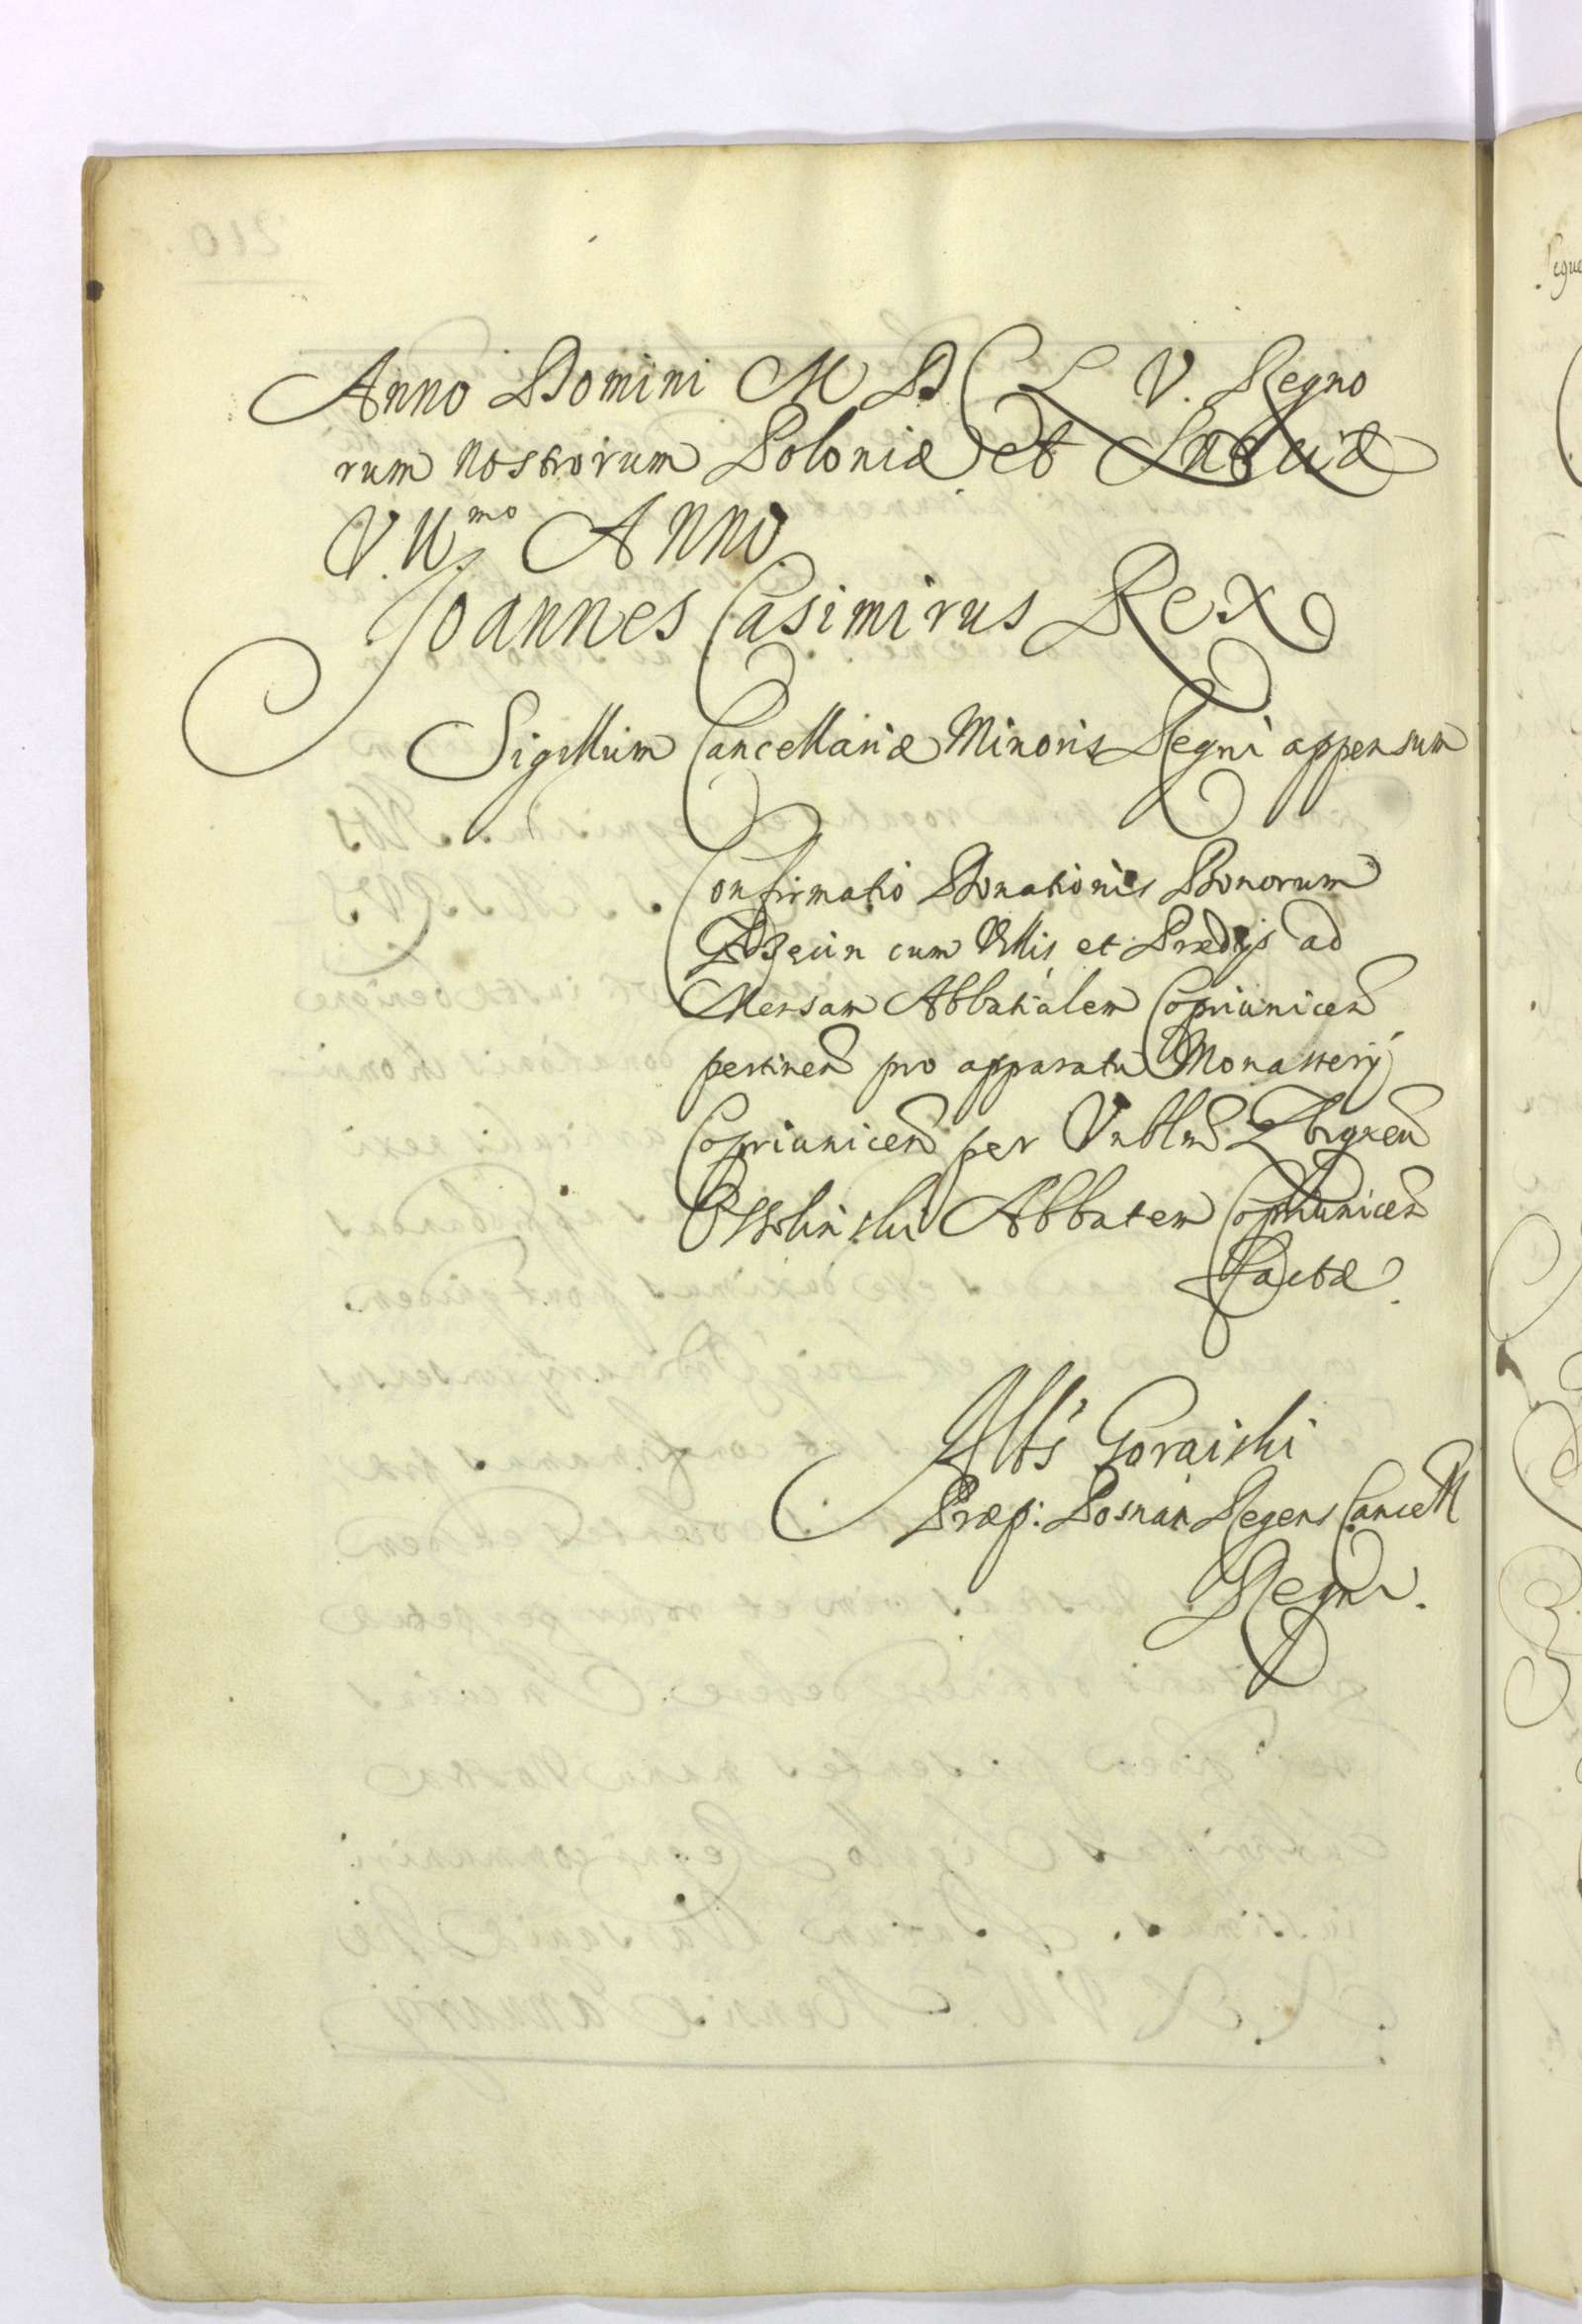 Anno Domini M D C L V. Regno
rum nostrorum Poloniæ et Sueciæ
V. II.mo Anno
Joannes Casimirus Rex
Sigillum Cancellariæ Minoris Regni appensum
Confirmatio Donationis Bonorum
cum Villis et Prædijs ad
Mensam Abbatialem Copriunicen
pertinen pro apparatu Monasterij
Copriunicen per Vnblm Zbigneu
Ossolinski Abbatem Copriunicen
Factæ.
Albs Goraiski
Præp: Posnan Regens Cancell
Regni.